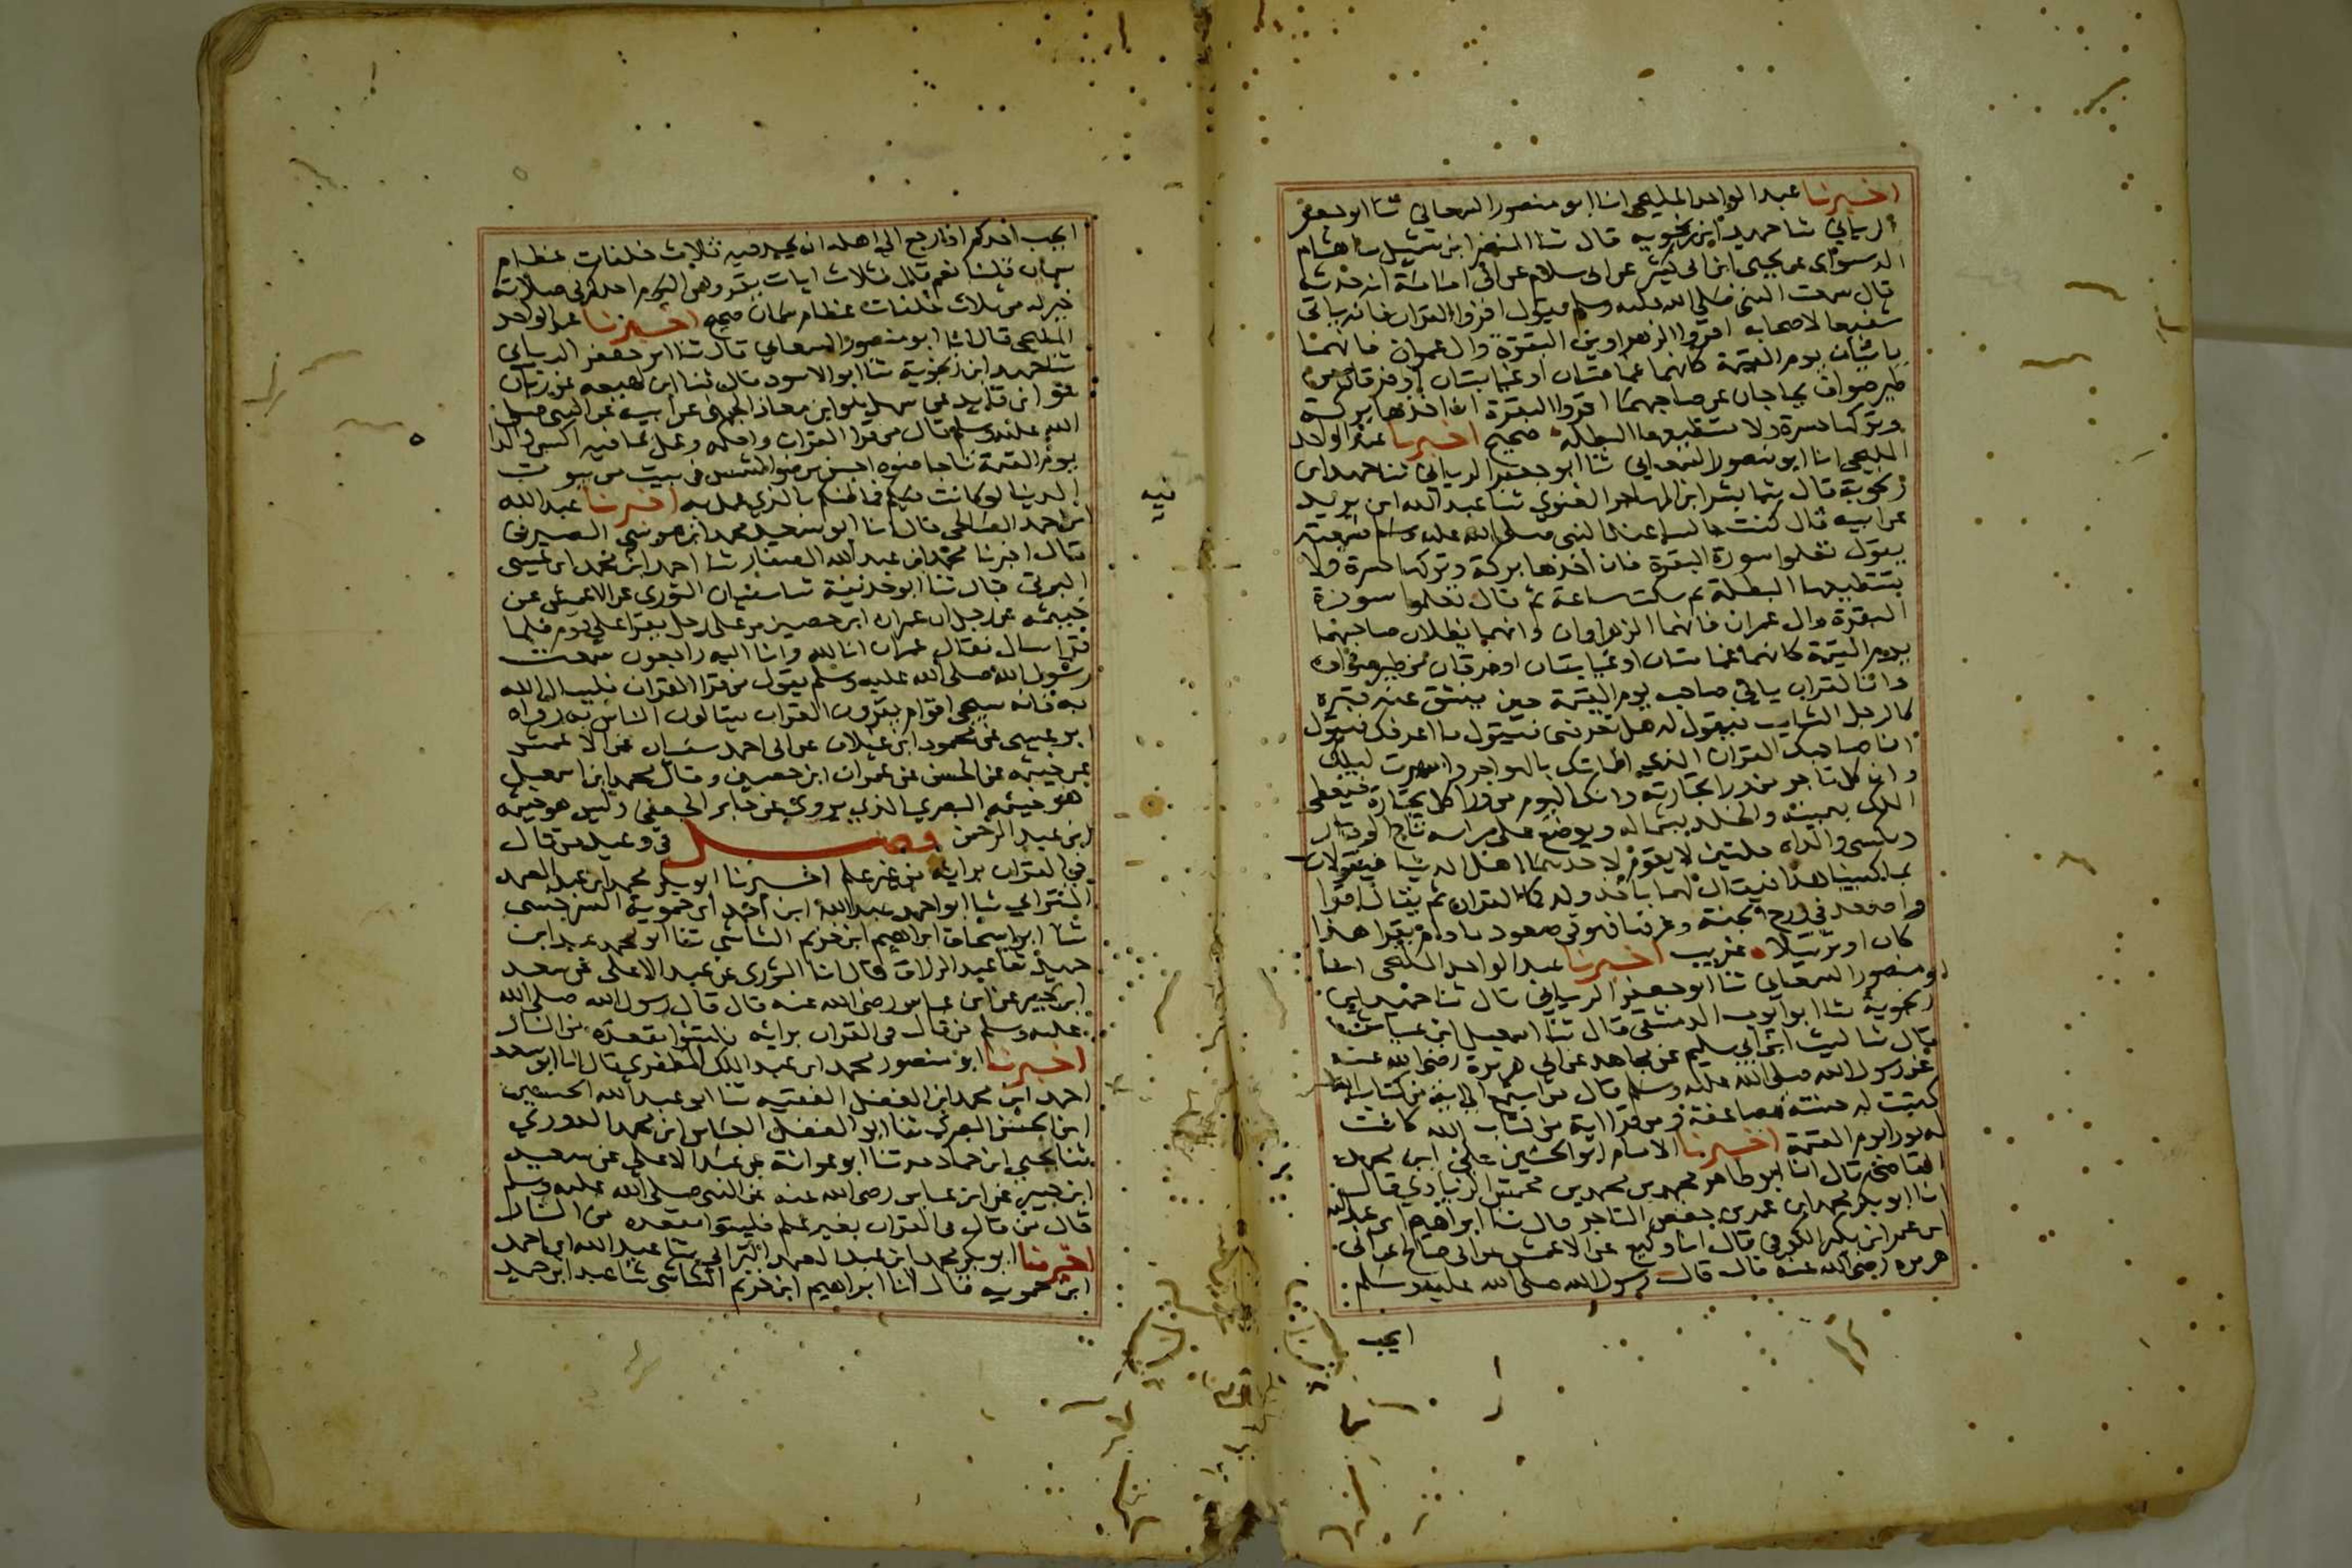 اخبرنا عبد الواحد المليحي انا ابو منصور السمعاني ثنا ابو جعفر
الرياني ثنا حميد ابن زنجويه قال ثنا النضر ابن شميل ثنا هشام
الدستوائي عن يحيى ابن ابي كثير عن ابي سلام عن ابي امامة انه حدثه
قال سمعت النبي صلى الله عليه وسلم يقول اقرؤا القران فانه ياتي
شفيعا لاصحابه اقروا الزهراوين البقرة وال عمران فانهما
ياتيان يوم القيمة كانهما غمامتان او غيايتان او فرقان من
طير صواف يحاجان عن صاحبهما اقروا البقرة فان اخذها بركة
وتركها حسرة ولا تستطيعها البطلة صحيح اخبرنا عبد الواحد
المليحي انا ابو منصور السمعاني ثنا ابو جعفر الرياني ثنا حميد ابن
زنجوية قال ثنا بشر ابن المهاجر الغنوي ثنا عبد الله ابن بريد
عن ابيه قال كنت جالسا عند النبي صلى الله عليه وسلم فسمعته
يقول تعلموا سورة البقرة فان اخذها بركة وتركها حسرة ولا
تستطيعها البطلة ثم سكت ساعة ثم قال تعلموا سورة
البقرة وال عمران فانهما الزهراوان وانهما يظلان صاحبهما
يوم القيمة كانهما غمامتان او غيايتان او فرقان من طير صواف
وان القران ياتي صاحبه يوم القيمة حين ينشق عنه قبره
كالرجل الشاحب فيقول له هل تعرفني فيقول ما اعرفك فيقول
انا صاحبك القران الذي اظماتك بالهواجر واسهرت ليلك
وان كل تاجر من ورا تجارته وانك اليوم من ورا كل تجارة فيعطى
الملك بيمينه والخلد بشماله ويوضع على راسه تاج الوقار
ويكسى والداه حلتين لا يقوم لاحدهما اهل الدنيا فيقولان
بم كسينا هذا فيقال لهما باخذ ولدكما القران ثم يقال اقرا
واصعد في درج الجنة وغرفها فهو في صعود ما دام يقرا هذا
كان او ترتيلا غريب اخبرنا عبد الواحد المليحي انا
ابو منصور السمعاني ثنا ابو جعفر الرياني قال ثنا حميد ابن
زنجوية ثنا ابو ايوب الدمشقي قال ثنا اسمعيل ابن عياش
قال ثنا ليث ابن ابي سليم عن مجاهد عن ابي هريرة رضي الله عنه
عن رسول الله صلى الله عليه وسلم قال من استمع الى اية من كتاب الله
كتبت له حسنة مضاعفة ومن قرا اية من كتاب الله كانت
له نورا يوم القيمة اخبرنا الامام ابو الحسين علي ابن محمد
القاضي قال انا ابو طاهر محمد بن محمد بن محمش الزيادي قال
انا ابو بكر محمد ابن عمر بن حفص التاجر قال ثنا ابراهيم ابن عبد الله
ابن عمر ابن بكير الكوفي قال انا وكيع عن الاعمش عن ابي صالح عن ابي
هريره رضي الله عنه قال قال رسول الله صلى الله عليه وسلم
ايحب
ايحب احدكم اذا رجع الى اهله ان يجد فيه ثلاث خلفات عظام
سمان قلنا نعم قال فثلاث ايات يقروهن احدكم في صلاته
خير له من ثلاث خلفات عظام سمان صحيح اخبرنا عبد الواحد
المليحي قال انا ابو منصور السمعاني قال ثنا ابو جعفر الرياني
ثنا حميد ابن زنجوية ثنا ابو الاسود قال ثنا ابن لهيعه عن زبان
هو ابن فايد عن سهل هو ابن معاذ الجهني عن ابيه عن النبي صلى
الله عليه وسلم قال من قرا القران واحكمه وعمل بما فيه البس والداه
يوم القيمة تاجا ضوءه احسن من ضو الشمس في بيت من بيوت
الدنيا لو كانت فيكم فما ظنكم بالذي عمل به اخبرنا عبد الله
ابن احمد الصالحي قال انا ابو سعيد محمد ابن موسى الصيرفي
قال اخبرنا محمد ابن عبد الله الصفار ثنا احمد ابن محمد ابن عيسى
البرتي قال ثنا ابو حذيفة ثنا سفيان الثوري عن الاعمش عن
خيثمه عن رجل ان عمران ابن حصين مر على رجل يقرا على قوم فلما
قرا سال فقال عمران انا لله وانا اليه راجعون سمعت
رسول الله صلى الله عليه وسلم يقول من قرا القران فليسال الله
به فانه سيجي اقوام يقرون القران يسالون الناس به رواه
ابو عيسى عن محمود ابن غيلان عن ابي احمد سفيان عن الاعمش
عن خيثمه عن الحسن عن عمران ابن حصين وقال محمد ابن اسمعيل
هو خيثمه البصري الذي يروي عن جابر الجعفي وليس هو خيثمه
ابن عبد الرحمن فصل في وعيد من قال
في القران برايه من غير علم اخبرنا ابو بكر محمد ابن عبد الصمد
الترابي ثنا ابو احمد عبد الله ابن احمد ابن حموية السرخسي
ثنا ابو اسحاق ابراهيم ابن خزيم الشاشي ثنا ابو محمد عبد ابن
حميد ثنا عبد الرزاق قال انا الثوري عن عبد الاعلى عن سعيد
ابن جبير عن ابن عباس رضي الله عنه قال قال رسول الله صلى الله
عليه وسلم من قال في القران برايه فليتبوا مقعده من النار
اخبرنا ابو منصور محمد ابن عبد الملك المظفري قال انا ابو سعيد
احمد ابن محمد ابن الفضل الفقيه ثنا ابو عبد الله الحسين
ابن الحسن البصري ثنا ابو الفضل العباس ابن محمد الدوري
ثنا يحيى ابن حماد ثنا ابو عوانة عن عبد الاعلى عن سعيد
ابن جبير عن ابن عباس رضي الله عنه عن النبي صلى الله عليه وسلم
قال من قال في القران بغير علم فليتبوا مقعده من النار
اخبرنا ابو بكر محمد ابن عبد الصمد الترابي ثنا عبد الله ابن احمد
ابن حمويه قال انا ابراهيم ابن خزيم الشاشي ثنا عبد ابن حميد